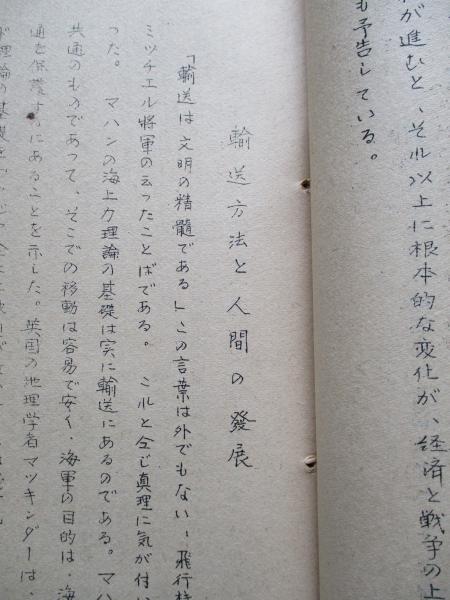 が進むと、それ以上に根本的な変化が、経済と戦争の上
も予告している。
輸送方法と人間の發展
「輸送は文明の精髓である」この言葉は外でもない、飛行
ミッチエル将軍の云ったことばである。 ミルと全じ真理に気が付い
った。 マハンの海上力理論の基礎は実に輸送にあるのである。マハ
共通のものであって、そこでの移動は容易で安く、海軍の目的は、海
通を保護するにあることを示した。英国の地理学者マッキンダーは、
理論の基礎を